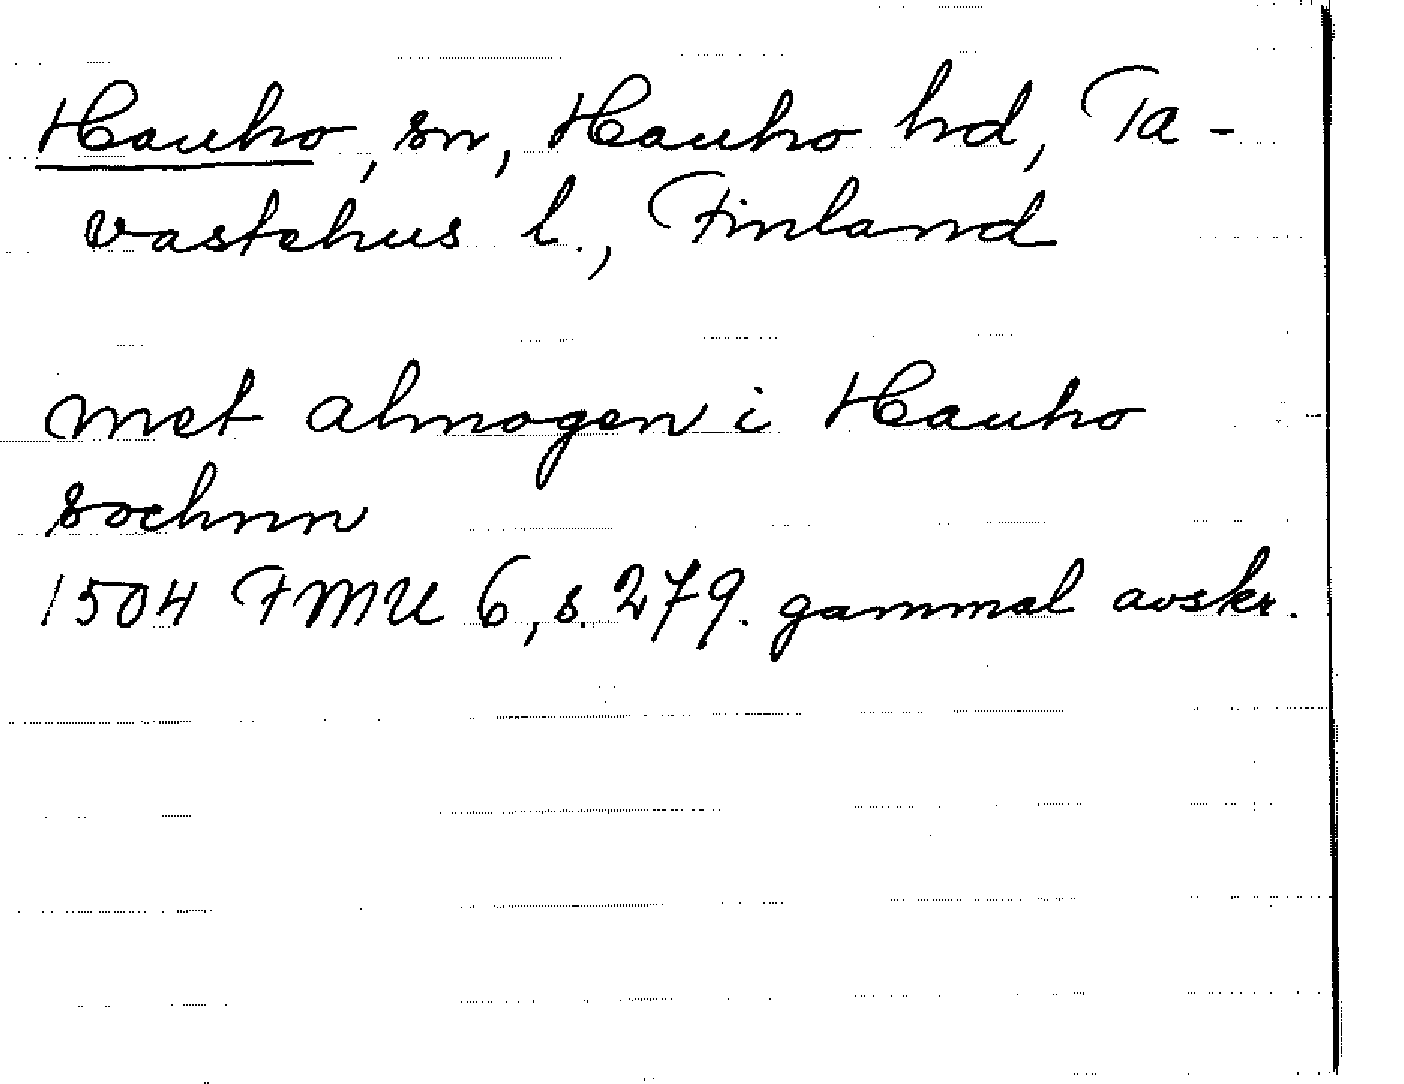 Hauho, sn, Hauho hd, Ta-
vastehus l., Finland
met almogen i Hauho
sochnn
1504 FMU 6, s. 279. gammal avskr.